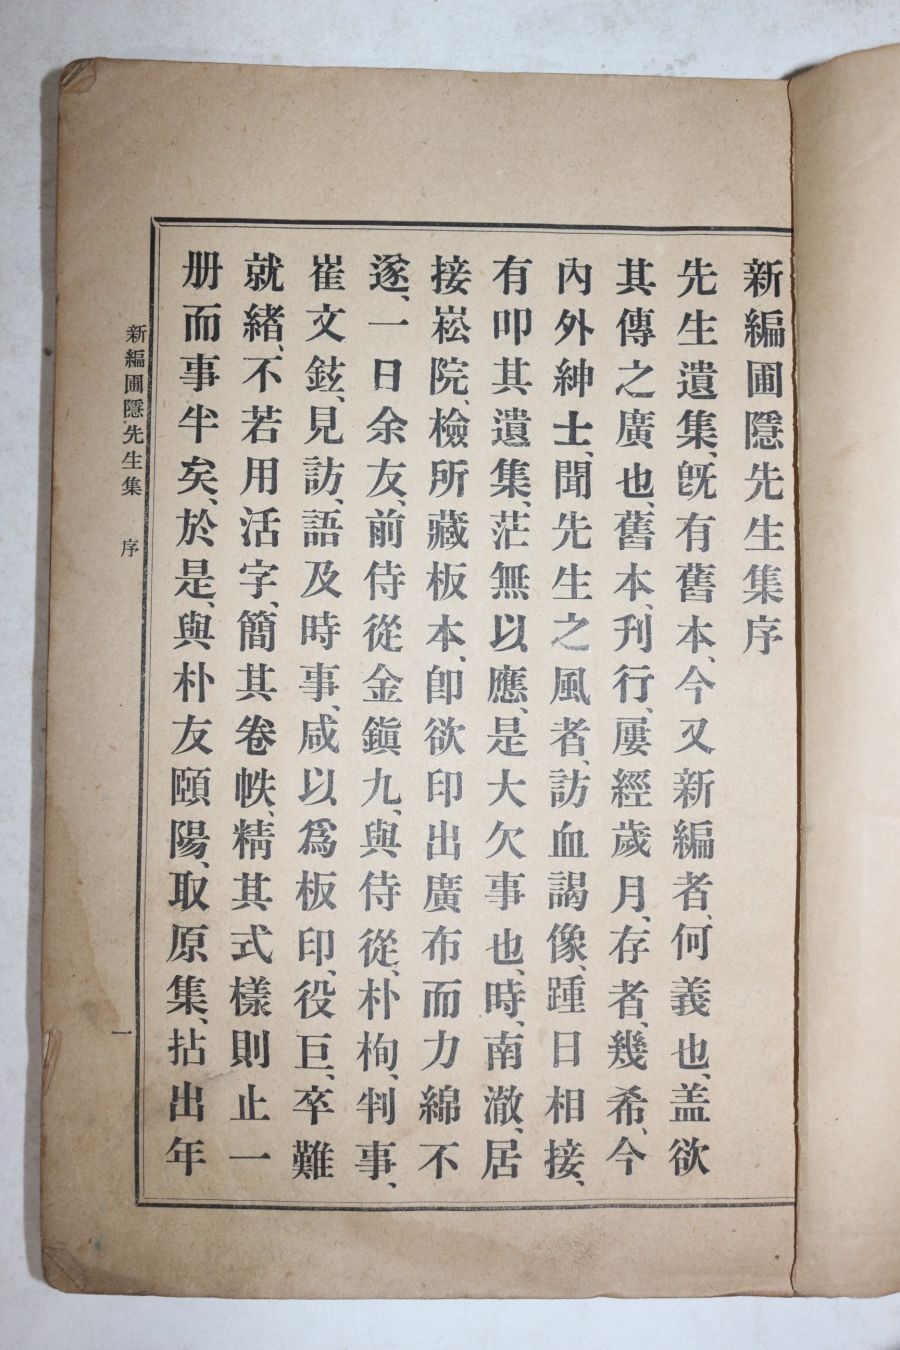 新編圃隱先生集序
先生遺集、旣有舊本、今又新編者、何義也、盖欲
其傳之廣也、舊本、刋行、屢經歲月、存者、幾希、今
內外紳士、聞先生之風者、訪血謁像、踵日相接、
有叩其遺集、茫無以應、是大欠事也、時、南澈、居
接崧院、檢所藏板本、卽欲印出廣布而力綿不
遂、一日余友、前侍從金鎭九、與侍從、朴枸、判事、
崔文鉉、見訪、語及時事、咸以爲板印、役巨、卒難
就緖、不若用活字、簡其卷帙、精其式樣則止一
册而事半矣、於是、與朴友頤陽、取原集、拈出年
新編圃隱先生集 序 一